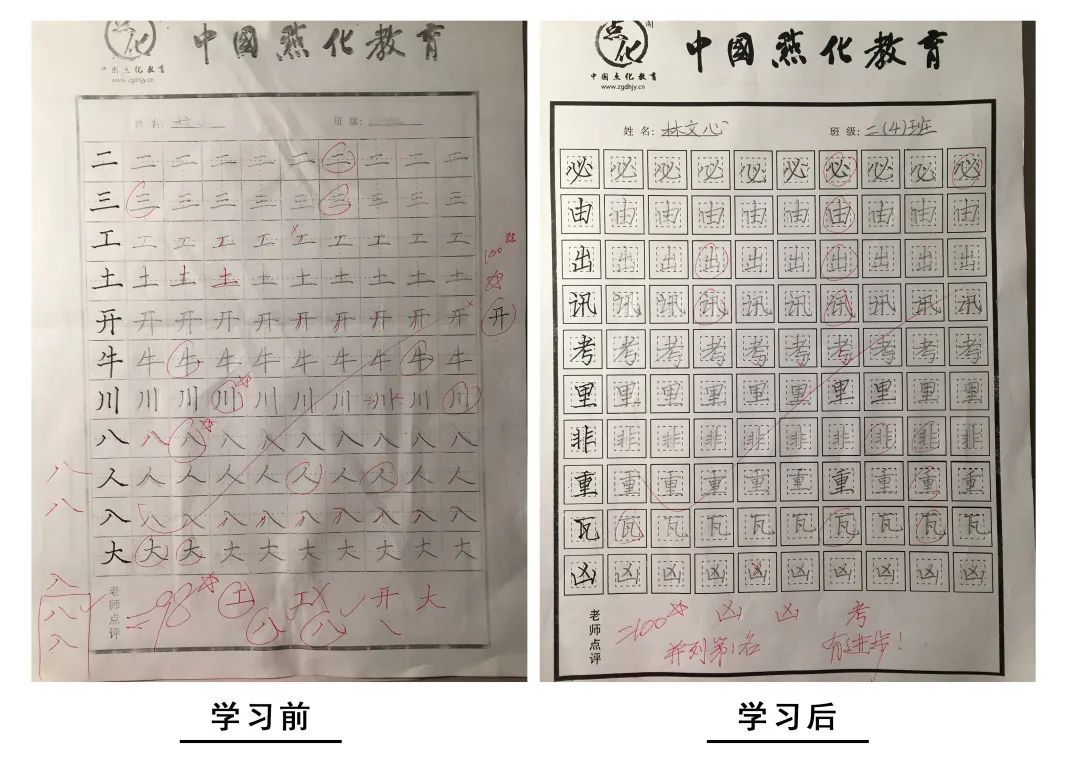 点化
中国点化教育
www.zgdhjy.cn
中國點化教育
姓名:
班级:
二 二 二 二 二 二 二 二 二 二
三 三 三 三 三 三 三 三 三 三
工 工 工 工 工 工 工 工 工 工
土 土 土 土 土 土 土 土 土 土
100
开 开 开 开 开 开 开 开 开 开 开
牛 牛 牛 牛 牛 牛 牛 牛 牛 牛
川 川 川 川 川 川 川 川 川 川
八 八 八 八 八 八 八 八 八 八
人 人 人 人 人 人 人 人 人 人
入 入 入 入 入 入 入 入 入 入
大 大 大 大 大 大 大 大 大 大
老师点评
98 土 工 开 大
八 八
学习前
点化
中国点化教育
www.zgdhjy.cn
中國點化教育
姓名: 林文心 班级: 二(4)班
必 必 必 必 必 必 必 必 必 必
由 由 由 由 由 由 由 由 由 由
出 出 出 出 出 出 出 出 出 出
讯 讯 讯 讯 讯 讯 讯 讯 讯 讯
考 考 考 考 考 考 考 考 考 考
里 里 里 里 里 里 里 里 里 里
非 非 非 非 非 非 非 非 非 非
重 重 重 重 重 重 重 重 重 重
瓦 瓦 瓦 瓦 瓦 瓦 瓦 瓦 瓦 瓦
凶 凶 凶 凶 凶 凶 凶 凶 凶 凶
老师点评
100 凶 凶 考
并列第1名 有进步!
学习后